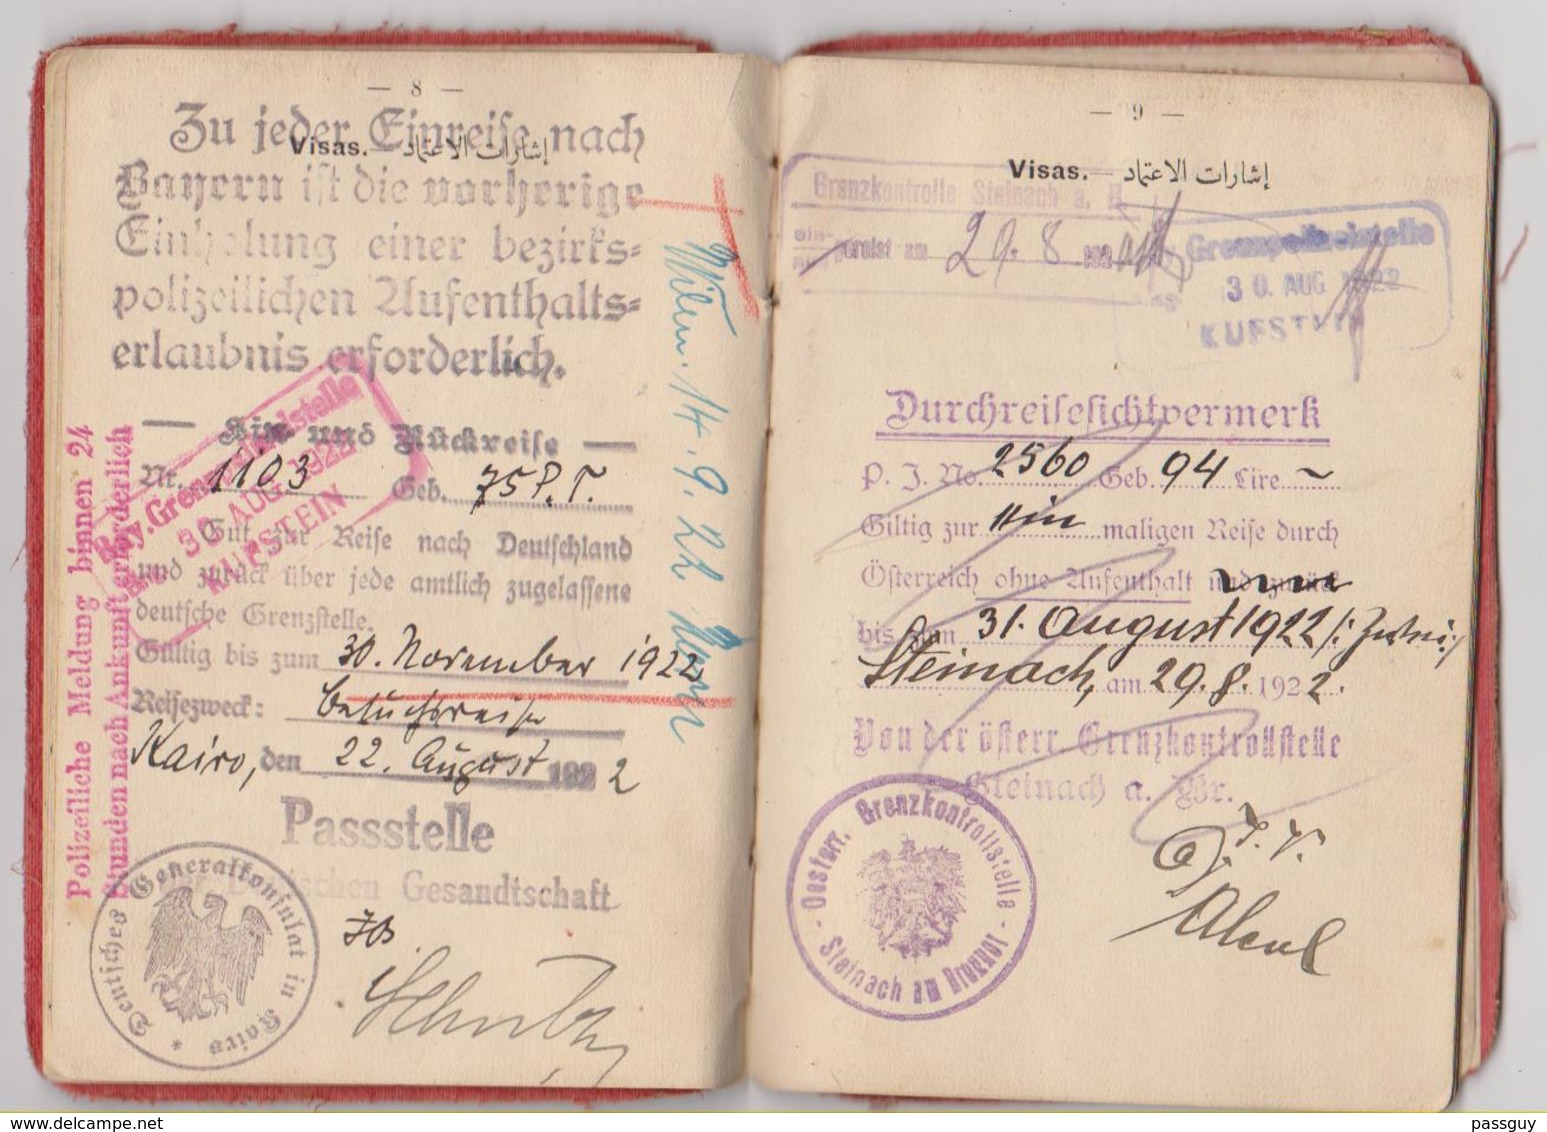 — 8 —
Visas. — إشارات الاعتماد
Zu jeder Einreise nach
Bayern ist die vorherige
Einholung einer bezirks=
polizeilichen Aufenthalts=
erlaubnis erforderlich.
— Hin und Rückreise —
Nr. 1103 Geb. 75 P.T.
Gut zur Reise nach Deutschland
und zurück über jede amtlich zugelassene
deutsche Grenzstelle.
Gültig bis zum 30. November 1922
Reisezweck: Besuchsreise
Kairo, den 22. August 1922
Passstelle
der Deutschen Gesandtschaft
Deutsches Generalkonsulat in Kairo *
Polizeiliche Meldung binnen 24
Stunden nach Ankunft erforderlich
30 AUG. 1922
KUFSTEIN
14. 9. 22
— 9 —
Visas. — إشارات الاعتماد
Grenzkontrolle Steinach a. B.
ein-
gereist am 29. 8. 192
Grenzpolizeistelle
30. AUG 1922
KUFSTEIN
Durchreisesichtvermerk
P. J. No. 2560 Geb. 94 Lire ~
Giltig zur ein maligen Reise durch
Österreich ohne Aufenthalt und zurück
bis zum 31. August 1922
Steinach, am 29. 8. 1922.
Von der österr. Grenzkontrollstelle
Steinach a. Br.
J. V.
Oesterr. Grenzkontrollstelle
- Steinach am Brenner -
www.delcampe.net
passguy